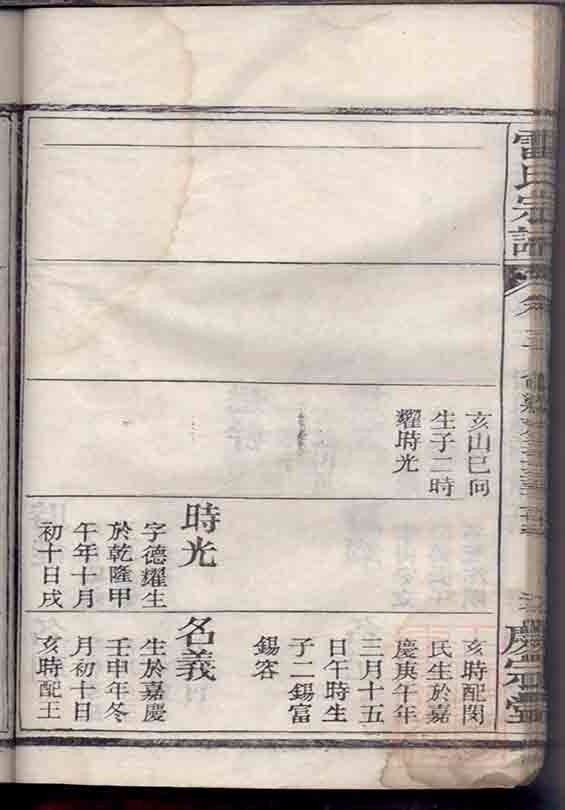 雷氏宗譜
亥山巳向
生子二時
耀時光
時光
字德耀生
於乾隆甲
午年十月
初十日戌
亥時配閔
民生於嘉
慶庚午年
三月十五
日午時生
子二錫富
錫容
名義
生於嘉慶
壬申年冬
月初十日
亥時配王